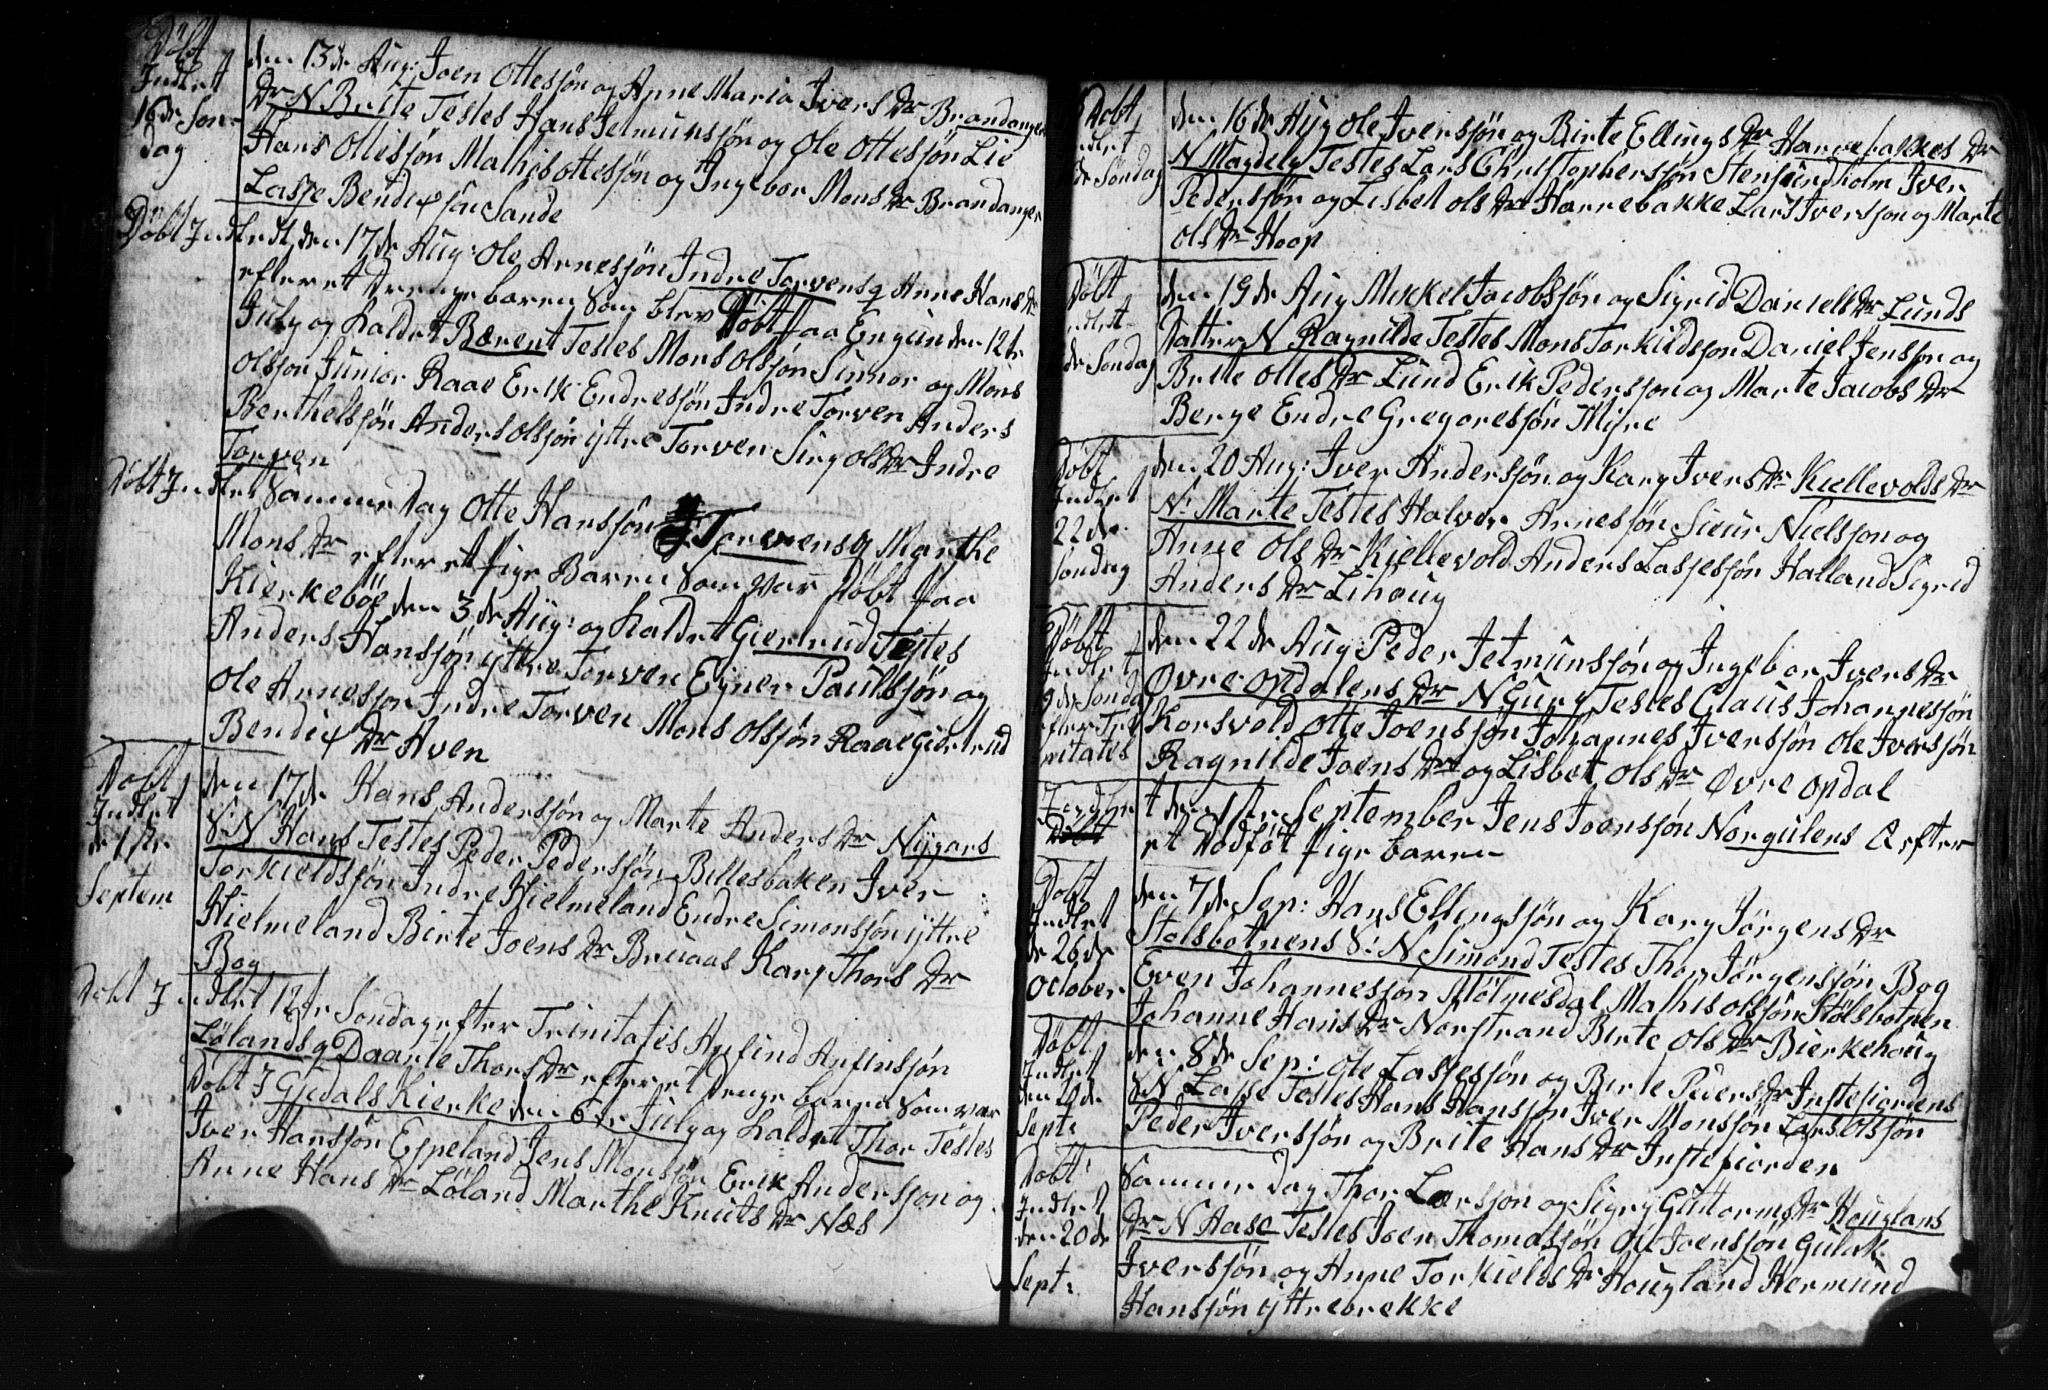 Döbt
Indlet
16de Søn-
dag
den 13de Aug: Joen Ottesjøn og Anne Maria Ivers Dr Brandanger
Dr N Brite Testes Hans Jetmunsjøn og Ole Ottesjøn Lie
Hans Ottesjøn Mathis Ottesjøn og Ingebor Mons Dr Brandanger
Lasse Bendixsjøn Sande
Döbt Indledt den 17de Aug: Ole Arnesjøn Indre Torvens q Anne Hans Dr
efter et Drenge baren Som blev Döbt paa Engiin den 12te
July og kaldet Bærent Testes Mons Olssjon Sinnor og Mons
Olssjon Junior Raae Erik Endresjøn Indre Torven Anders
Berthelsjøn Anders Olssjøn ijttre Torven Siry Ols Dr Indre
Torven
Döbt Indlet Samme Dag Otte Hansjøn J: Torvens q Marthe
Mons Dr efter et Pige Baren Som var Döbt paa
Kierkeböe den 3de Aug: og kaldet Giertrud Testes
Anders Hansjøn ijttre Torven Ejner Paulsjøn og
Ole Arnesjon Indre Torven Mons Olssjøn Raae Giertrud
Bendix Dr Hven
Döbt
Indlet
de 1ste
Septem
den 17de Hans Andersjøn og Marte Anders Dr Nijgars
S: N Hans Testes Peder Pedersjøn Billesbaken Iver
Torkieldsjøn Indre Hielmeland Endre Simonsjøn ijttre
Hielmeland Birte Joens Dr Bruaas Kary Thors Dr
Bog
Döbt Indlet 12te Søndag efter Trinitatis Anfind Anfinsjøn
Lølands q Daarte Thors Dr efter et Drenge baren Som var
Döbt I Gjedals Kierke den 6te July og kaldet Thor Testes
Iver Hansjøn Espeland Jens Monsjøn Erik Andersjon og
Anne Hans Dr Løland Marthe Knuts Dr Næs
Döbt
Indlet
de Søndag
den 16de Aug Ole Iversjøn og Birte Ellings Dr Harrebakkes Dr
N Magdely Testes Lars Christophersjøn Stensundholm Iver
Pedersjøn og Lisbet Ols Dr Harrebakke Lars Iversjon og Marte
Ols Dr Hoop
Döbt
Indlet
de Søndag
den 19de Aug Mikkel Jacobsjøn og Sigrid Daniels Dr Lunds
Datter N Ragnilde Testes Mons Torkildsjon Daniel Jensjon og
Brite Ottes Dr Lund Erik Pedersjon og Marte Jacobs Dr
Berge Endre Gregoresjøn Mijre
Döbt
Indlet
22de
Søndag
den 20 Aug: Iver Andersjøn og Kary Ivers Dr Kiellevolds Dr
N: Marte Testes Halvor Arnesjøn Siur Nielsjon og
Anne Ols Dr Kiellevold Anders Lassesjøn Halland Sigrid
Anders Dr Lihoug
Döbt
Indlet
9de Sønda
efter Tri
nitates
den 22de Aug: Peder Jetmunsjøn og Ingebor Ivers Dr
Øvre Opdalens Dr N Gury Testes Claus Johannesjøn
Korsvold Otte Joensjøn Johannes Iversjøn Ole Iversjøn
Ragnilde Joens Dr og Lisbet Ols Dr Øvre Opdal
t den 1ste September Jens Joensjøn Norgulens Q efter
et Dödföt Pige baren
Döbt
Indlet
de 26de
October
den 7de Sep: Hans Ellingsjøn og Kary Jörgens Dr
Stølsbotnens S: N Simond Testes Thor Jørgensjøn Bog
Even Johannesjon Mølmesdal Mathis Olssjøn Stølsbotnen
Johanne Hans Dr Norstrand Birte Ols Dr Bierkehoug
Döbt
Indlet
den 20de
Sept:
den 8de Sep: Ole Lassesjøn og Birte Peders Dr Instefiordens
S N Lasse Testes Hans Hansjøn Iver Monsjøn Lars Olssjøn
Peder Iversjøn og Brite Hans Dr Instefiorden
Döbt
Indlet
den 20de
Sept:
Samme Dag Thor Larsjon og Sigry Guttorms Dr Houglans
Dr N Aase Testes Joen Thomassjøn Ole Joensjøn Gulak
Iversjøn og Anne Torkields Dr Hougland Hermund
Hansjøn ijttrebrekke